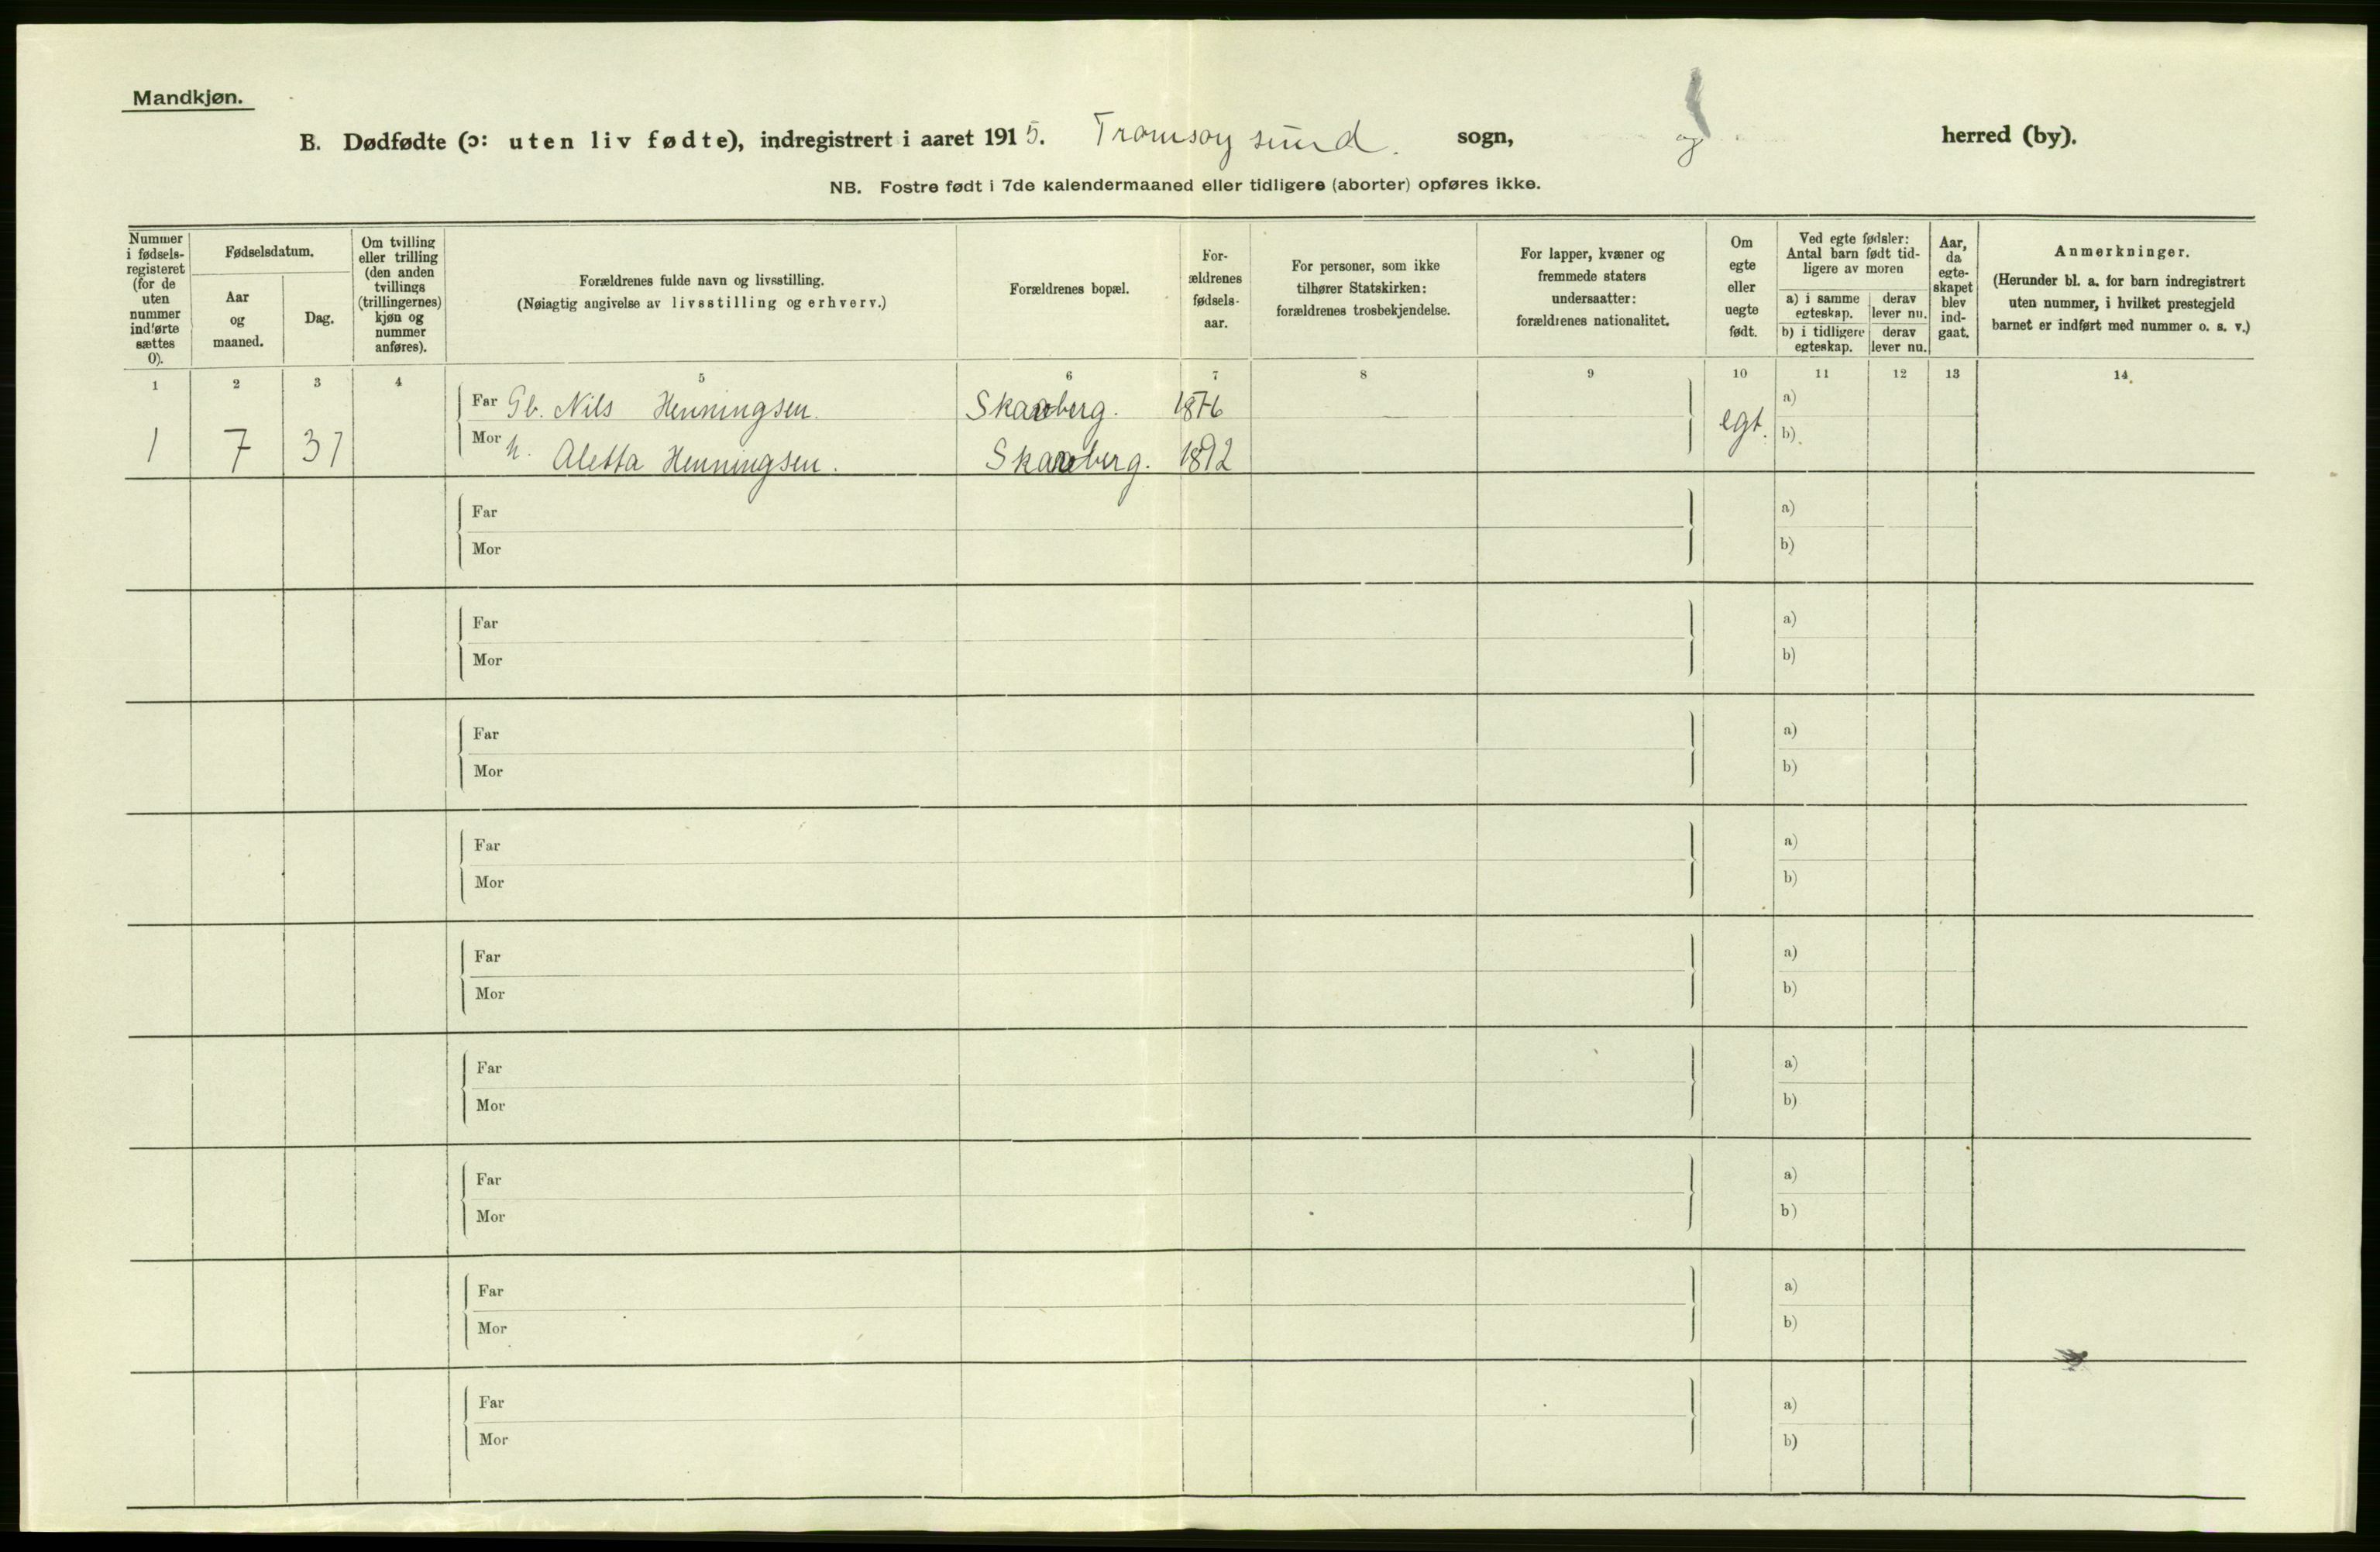 Mandkjøn.
B. Dødfødte (ɔ: uten liv fødte), indregistrert i aaret 1915. Tromsøysund. sogn, og herred (by).
NB. Fostre født i 7de kalendermaaned eller tidligere (aborter) opføres ikke.
Nummer i fødsels-registeret (for de uten nummer indførte sættes 0).
Fødselsdatum.
Aar og maaned.
Dag.
Om tvilling eller trilling (den anden tvillings (trillingernes) kjøn og nummer anføres).
Forældrenes fulde navn og livsstilling.
(Nøiagtig angivelse av livsstilling og erhverv.)
Forældrenes bopæl.
For-ældrenes fødsels-aar.
For personer, som ikke tilhører Statskirken: forældrenes trosbekjendelse.
For lapper, kvæner og fremmede staters undersaatter: forældrenes nationalitet.
Om egte eller uegte født.
Ved egte fødsler: Antal barn født tid-ligere av moren
a) i samme egteskap.
derav lever nu.
b) i tidligere egteskap.
derav lever nu.
Aar, da egte-skapet blev ind-gaat.
Anmerkninger.
(Herunder bl. a. for barn indregistrert uten nummer, i hvilket prestegjeld barnet er indført med nummer o. s. v.)
1 2 3 4 5 6 7 8 9 10 11 12 13 14.
Far Gb. Nils Henningsen. Skarberg. 1876 a)
1 7 31 Mor h. Aletta Henningsen. Skarberg. 1892 egt. b)
Far a)
Mor b)
Far a)
Mor b)
Far a)
Mor b)
Far a)
Mor b)
Far a)
Mor b)
Far a)
Mor b)
Far a)
Mor b)
Far a)
Mor b)
Far a)
Mor b)